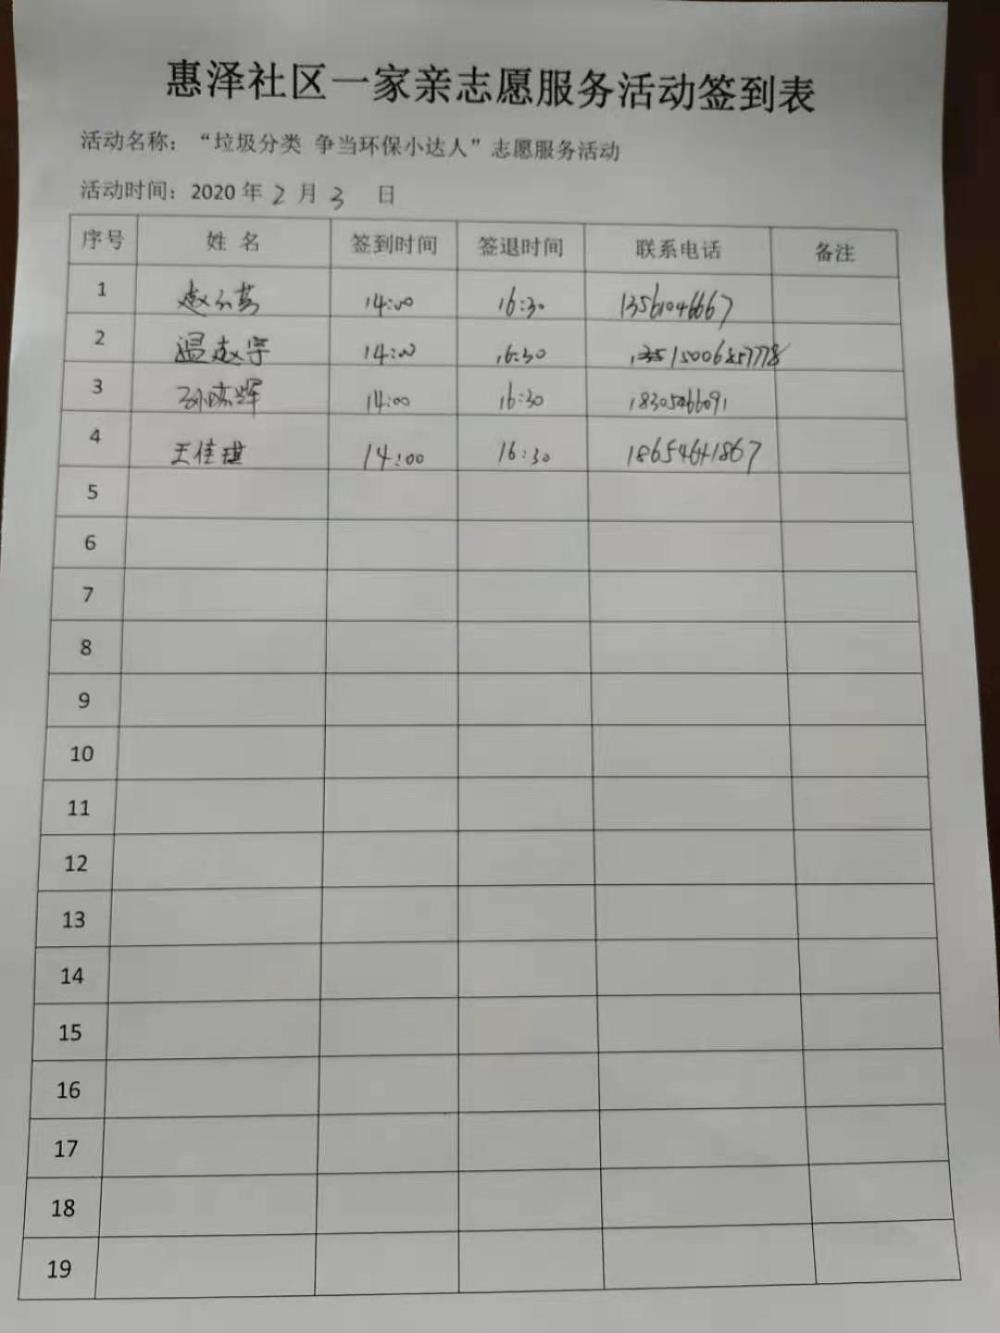 惠泽社区一家亲志愿服务活动签到表
活动名称：“垃圾分类 争当环保小达人”志愿服务活动
活动时间：2020 年 2 月 3 日
序号 姓 名 签到时间 签退时间 联系电话 备注
1 14:00 16:30 13561046667
2 温赵宇 14:00 16:30 15006857778
3 14:00 16:30 18305466091
4 王佳琪 14:00 16:30 18654641867
5
6
7
8
9
10
11
12
13
14
15
16
17
18
19